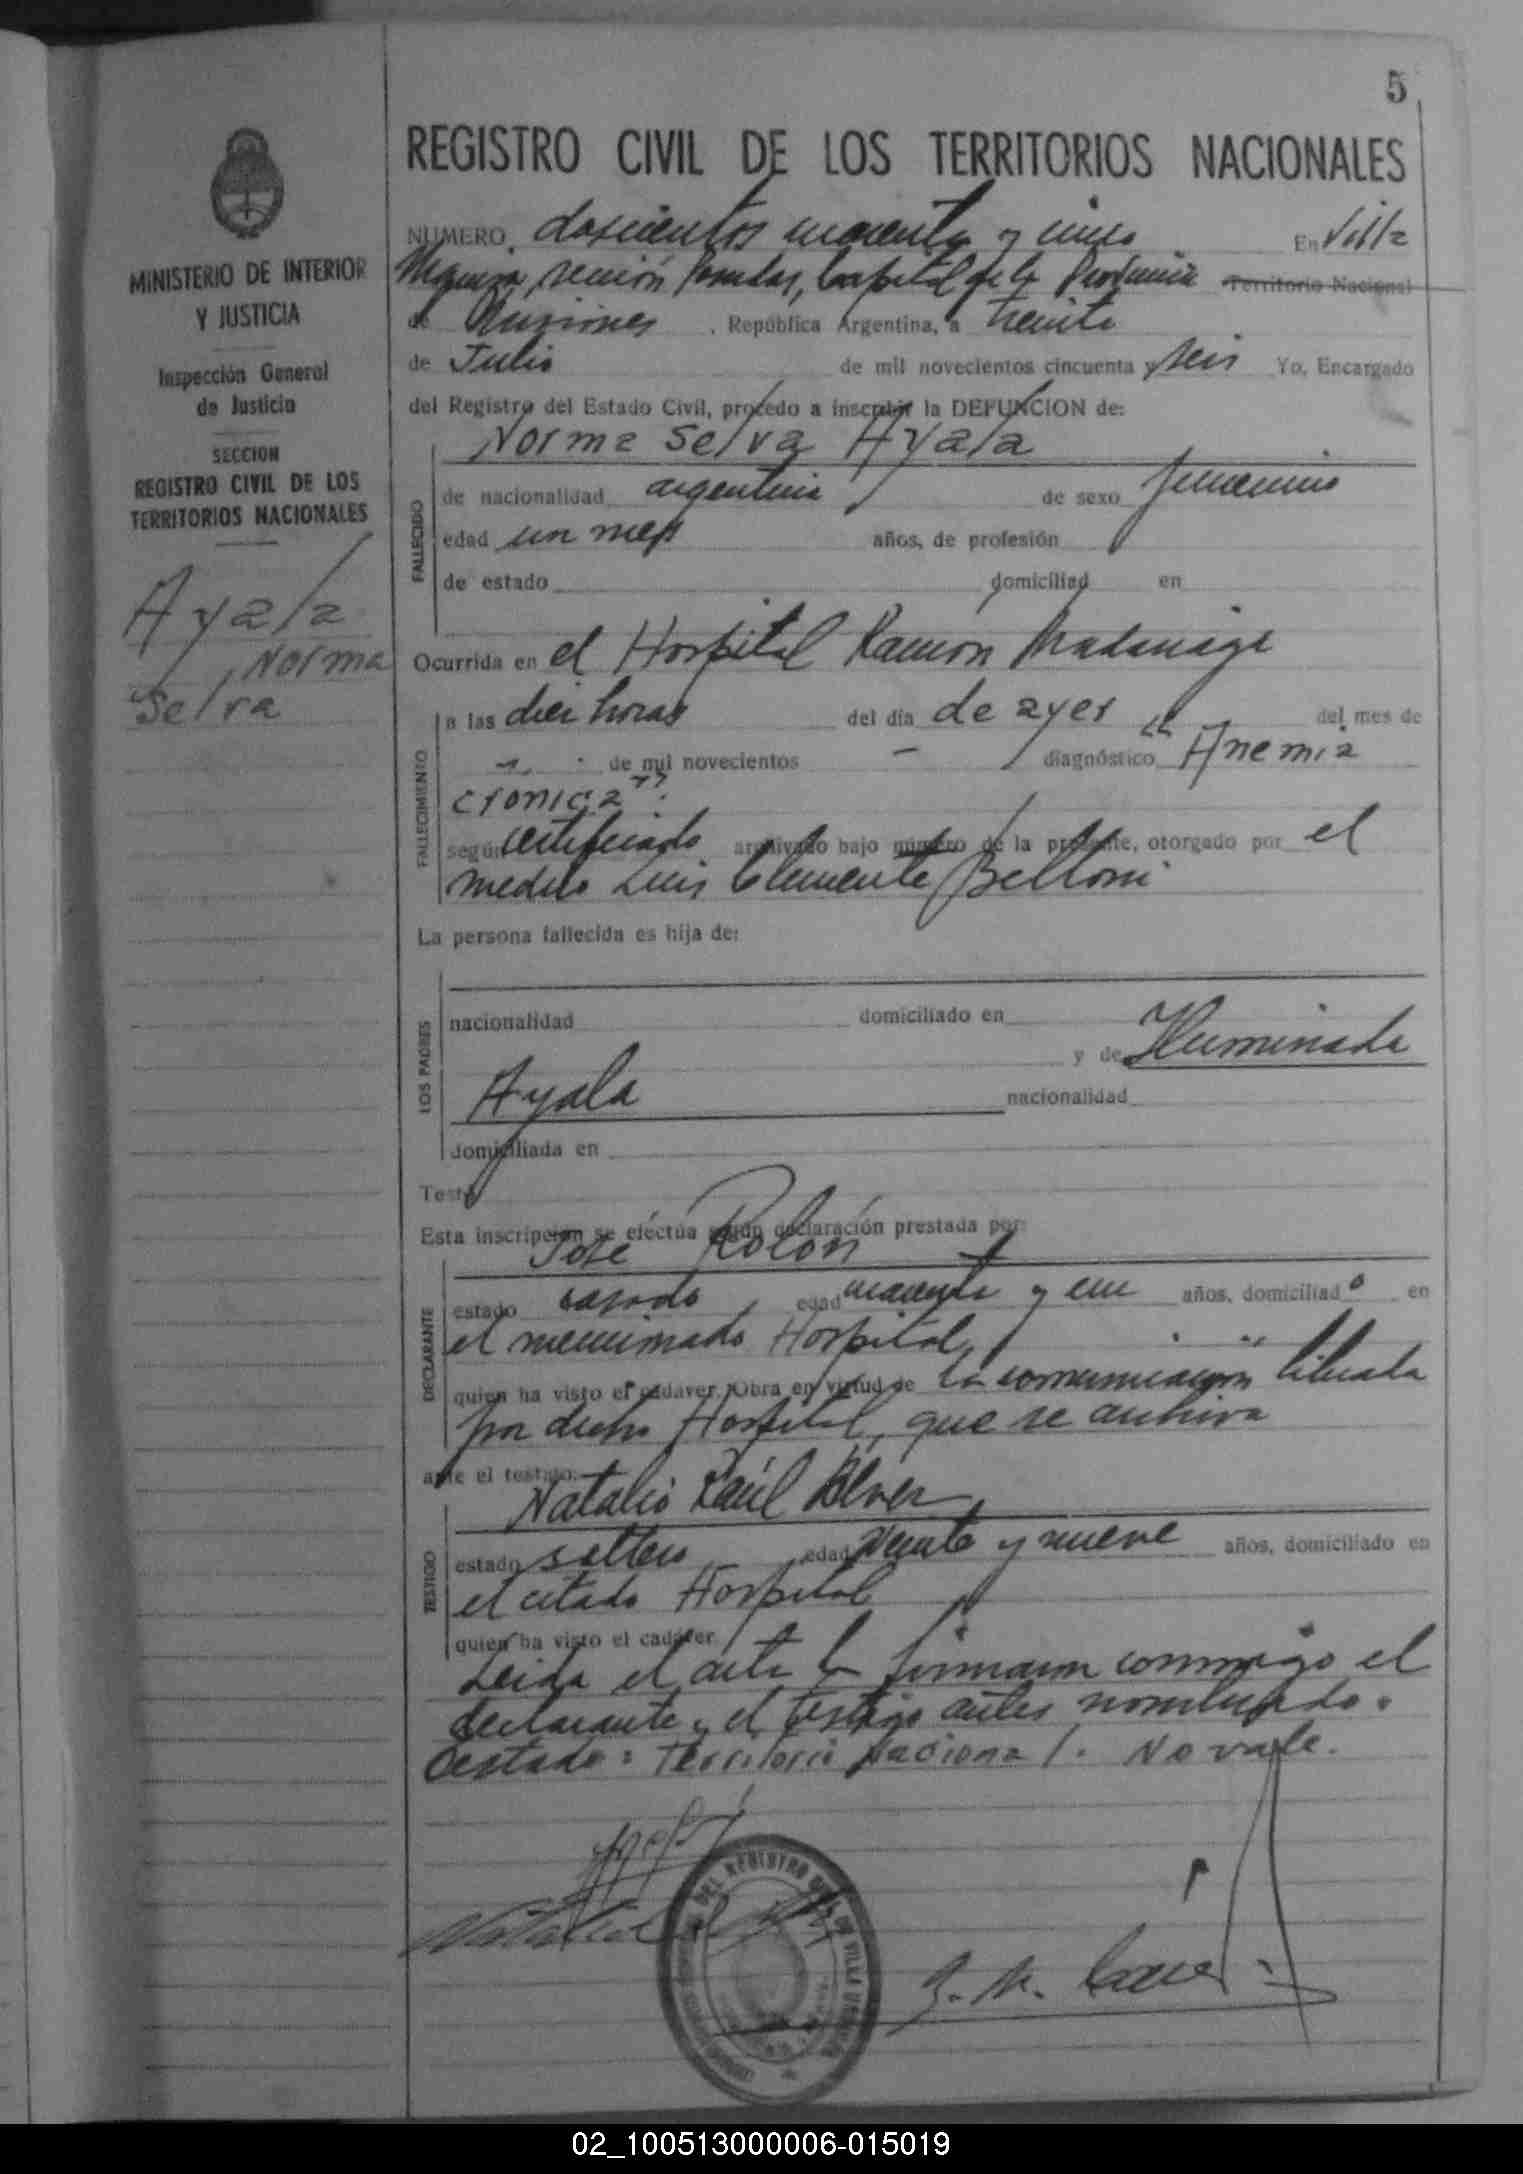 5
REGISTRO CIVIL DE LOS TERRITORIOS NACIONALES
MINISTERIO DE INTERIOR
Y JUSTICIA
Inspección General
de Justicia
SECCION
REGISTRO CIVIL DE LOS
TERRITORIOS NACIONALES
Ayala
, Norma
Selva
NUMERO doscientos cuarenta y cinco En Villa
Urquiza, sección Posadas, Capital de la Provincia Territorio Nacional
de Misiones , República Argentina, a treinta
de Julio de mil novecientos cincuenta y seis Yo, Encargado
del Registro del Estado Civil, procedo a inscribir la DEFUNCION de:
Norma Selva Ayala
FALLECIDO
de nacionalidad argentina de sexo femenino
edad un mes años, de profesión
de estado domiciliad en
Ocurrida en el Hospital Ramón Madariaga
FALLECIMIENTO
a las diez horas del día de ayer del mes de
de mil novecientos - diagnóstico "Anemia
cronica".
según certificado archivado bajo número de la presente, otorgado por el
médico Luis Clemente Belloni
La persona fallecida es hija de:
LOS PADRES
nacionalidad domiciliado en
y de Iluminada
Ayala nacionalidad
domiciliada en
Test
Esta inscripción se efectúa según declaración prestada por:
José Rolón
DECLARANTE
estado casado, edad cuarenta y un años, domiciliado en
el mencionado Hospital,
quien ha visto el cadáver. Obra en virtud de la comunicación librada
por dicho Hospital, que se archiva
ante el testigo:
Natalio Raúl
TESTIGO
estado soltero, edad veinte y nueve años, domiciliado en
el citado Hospital
quien ha visto el cadáver.
Leída el acta la firmaron conmigo el
declarante y el testigo antes nombrado.
Testado: Territorio Nacional. No vale.
DEL REGISTRO
DE VILLA URQUIZA
02_100513000006-015019